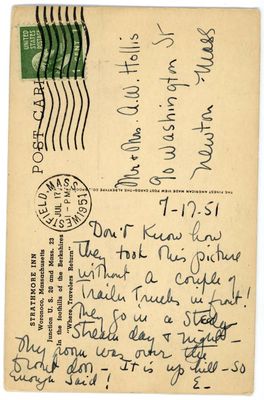 UNITED STATES POSTAGE
1 CENT 1
POST CARD
WESTFIELD MASS.
JUL 17
PM
1951
Mr & Mrs. A. W. Hollis
90 Washington St
Newton Mass
THE FINEST AMERICAN MADE VIEW CARDS—THE ALBERTYPE CO.,
STRATHMORE INN
Woronoco, Massachusetts
Junction U. S. 20 and Mass. 23
In the foothills of the Berkshires
"Where Travelers Return"
7-17-51
Don't Know how
they took this picture
without a couple of
Trailer Trucks in front!
They go in a Steady
Stream day & night-
My room was over the
front door - It is up hill - so
enough said!
E-